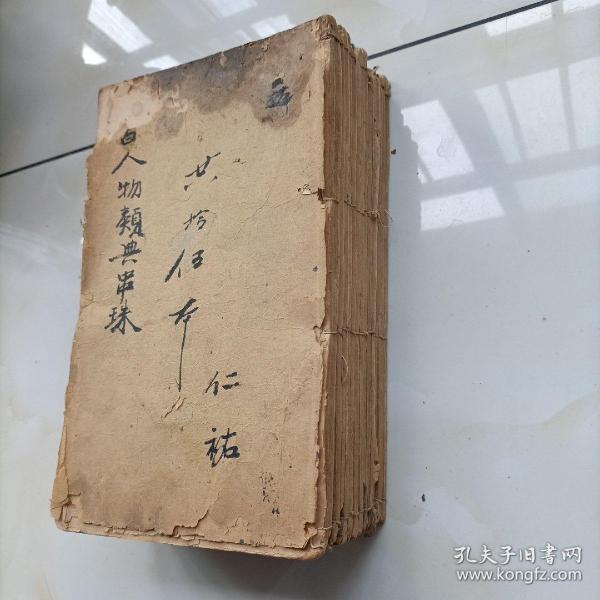 仁祐
共拾伍本
人物類典串珠
孔夫子旧书网
www.kongfz.com